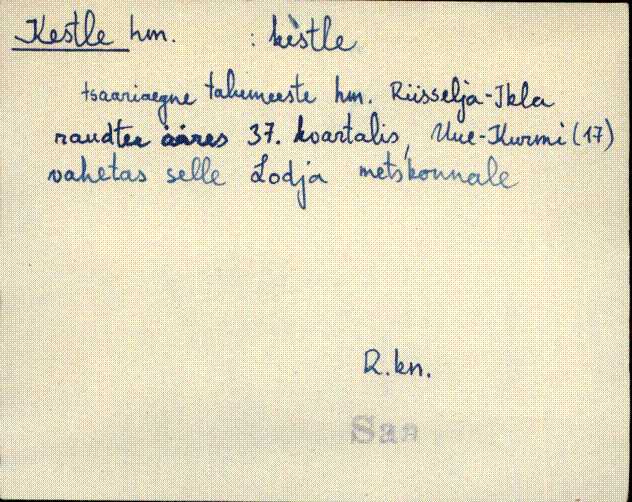 Kestle hm. : kèstle
tsaariaegne talumeeste hm. Riisselja-Ikla
raudtee ääres 37. kvartalis, Uue-Kurmi (17)
vahetas selle Lodja metskonnale
R.kn.
Saa